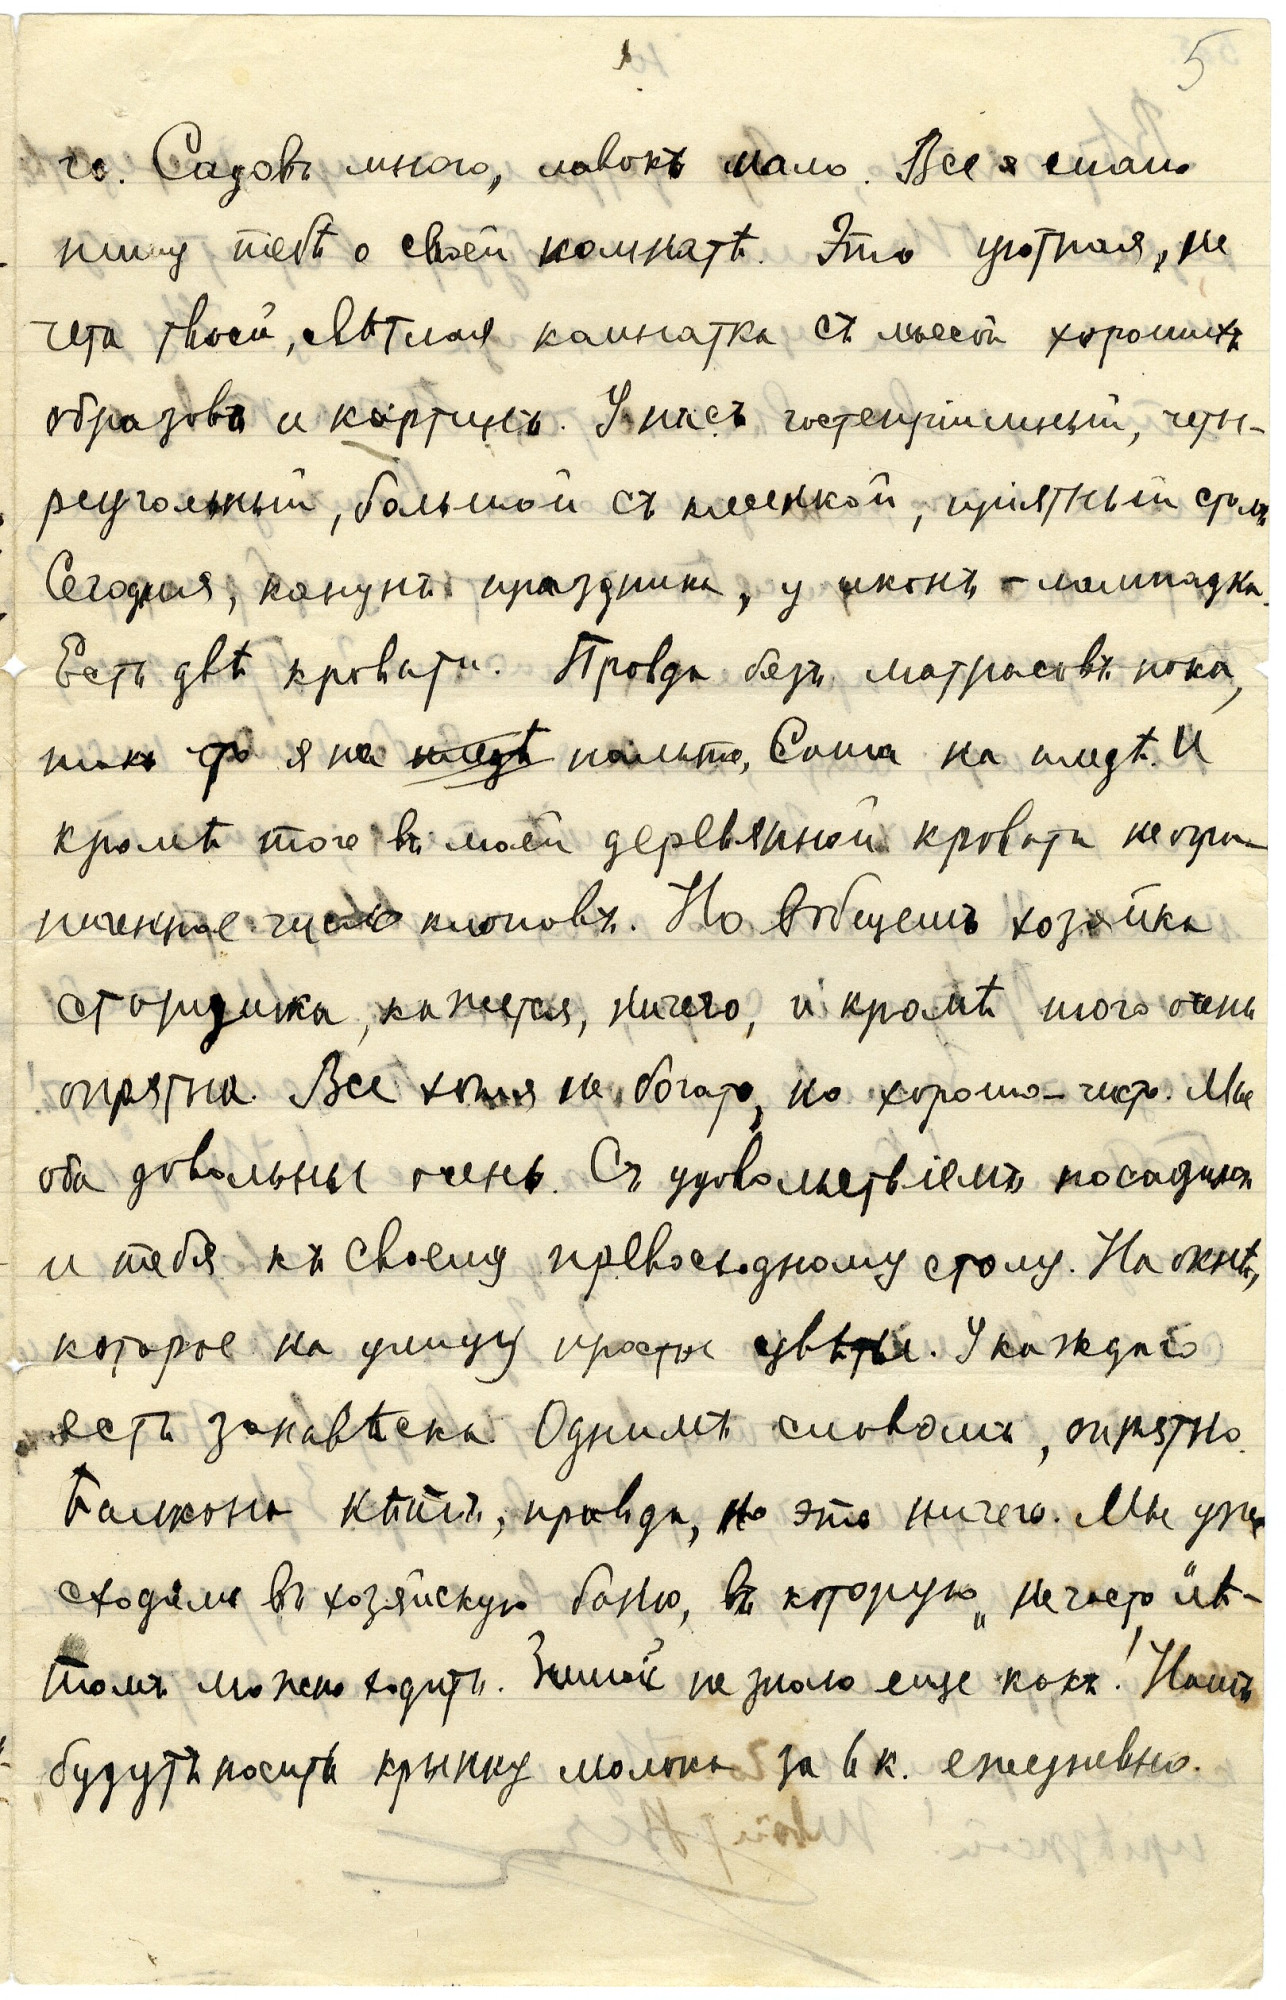 5
го. Садовъ много, лавокъ мало. Все я
пишу тебѣ о своей комнатѣ. Это уютная, не
чета твоей, свѣтлая комнатка съ массой хорошихъ
образовъ и картинъ. У насъ гостепріимный, четы-
реугольный, большой съ клеенкой, пріятный столъ
Сегодня, канунъ праздника, у иконъ - лампадка.
Есть двѣ кровати. Правда безъ матрасовъ пока,
такъ что я на пледѣ пальто, Саша на пледѣ. И
кромѣ того въ моей деревянной кровати неогра-
ниченное число клоповъ. Но вобщемъ хозяйка
старушка, кажется, ничего, и кромѣ того очень
опрятна. Все хотя не богато, но хорошо - чисто. Мы
оба довольны очень. Съ удовольствіемъ посадимъ
и тебя къ своему превосходному столу. На окнѣ,
которое на улицу простые цвѣты. У каждаго
есть занавѣска. Однимъ словомъ, опрятно.
Балкона нѣтъ, правда, но это ничего. Мы уже
сходили въ хозяйскую баню, въ которую „не часто" лѣ-
томъ можно ходить. Зимой не знаю еще какъ! Намъ
будутъ носить крынку молока за 6 к. ежедневно.